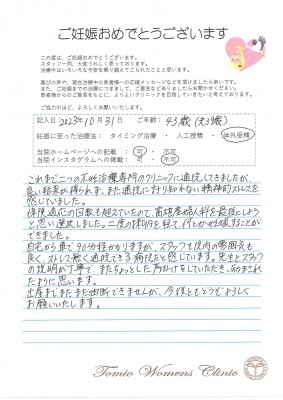 ご妊娠おめでとうございます
この度は、ご妊娠おめでとうございます。
スタッフ一同、大変うれしく思っております。
治療中はいろいろな不安を乗り越えてこられたことと思います。
喜びの声や、現在治療中の患者様への応援メッセージなどを頂けましたら幸いです。
また、ご妊娠までの治療につきまして、ご意見などありましたらお聞かせください。
患者様からのご意見をもとに、よりよいクリニックを目指していきたいと考えております。
ご協力のほど、よろしくお願いいたします。
記入日:2023年10月31日 ご年齢:43歳(夫39歳)
妊娠に至った治療法: タイミング治療 ・ 人工授精 ・ 体外受精
当院ホームページへの記載 : 可 ・ 不可
当院インスタグラムへの掲載 : 可 ・ 不可
これまで二つの不妊治療専門のクリニックに通院してきましたが、
良い結果が得られず、また通院に計り知れない精神的ストレスを
感じていました。
保険適応の回数も超えていたので、富雄産婦人科を最後にしよう
と思い選択しました。二度の採卵を経て、何とか妊娠することが
できました。
自宅から車で90分程かかりますが、スタッフも院内の雰囲気も
良く、ストレス無く通院できる病院だと感じています。先生とスタッフ
の説明が丁寧で、またちょっとした声かけをしていただき、励まされ
たように思います。
出産までまだまだ油断できませんが、今後ともどうぞよろしく
お願いいたします。
Tomio Womens Clinic